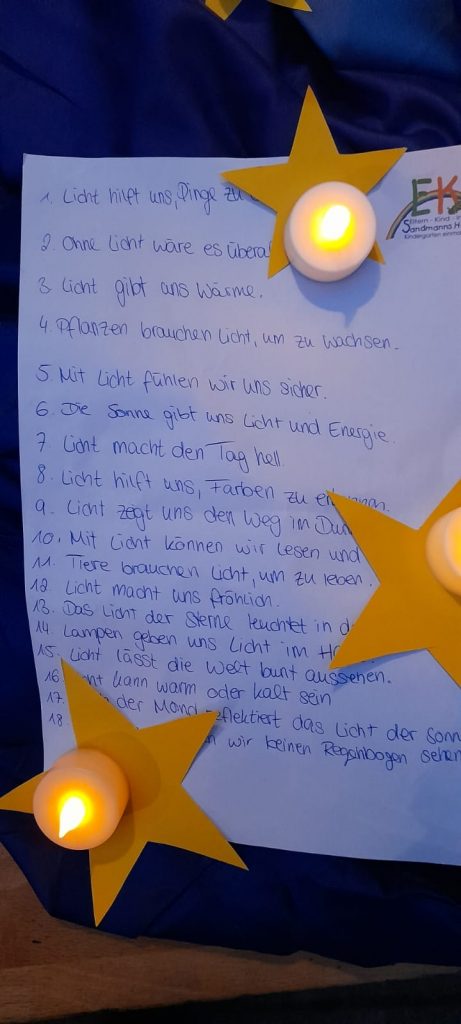 EK
Eltern - Kind -
Sandmanns
Kindergarten
1. Licht hilft uns, Dinge zu
2. Ohne Licht wäre es
3. Licht gibt uns Wärme.
4. Pflanzen brauchen Licht, um zu wachsen.
5. Mit Licht fühlen wir uns sicher.
6. Die Sonne gibt uns Licht und Energie.
7. Licht macht den Tag hell.
8. Licht hilft uns, Farben zu
9. Licht zegt uns den Weg im
10. Mit Licht können wir lesen und
11. Tiere brauchen Licht, um zu leben.
12. Licht macht uns fröhlich.
13. Das Licht der Sterne leuchtet in
14. Lampen geben uns Licht im
15. Licht lässt die Welt bunt aussehen.
16. kann warm oder kalt sein
17. der Mond reflektiert das Licht der
18. wir keinen Regenbogen sehen